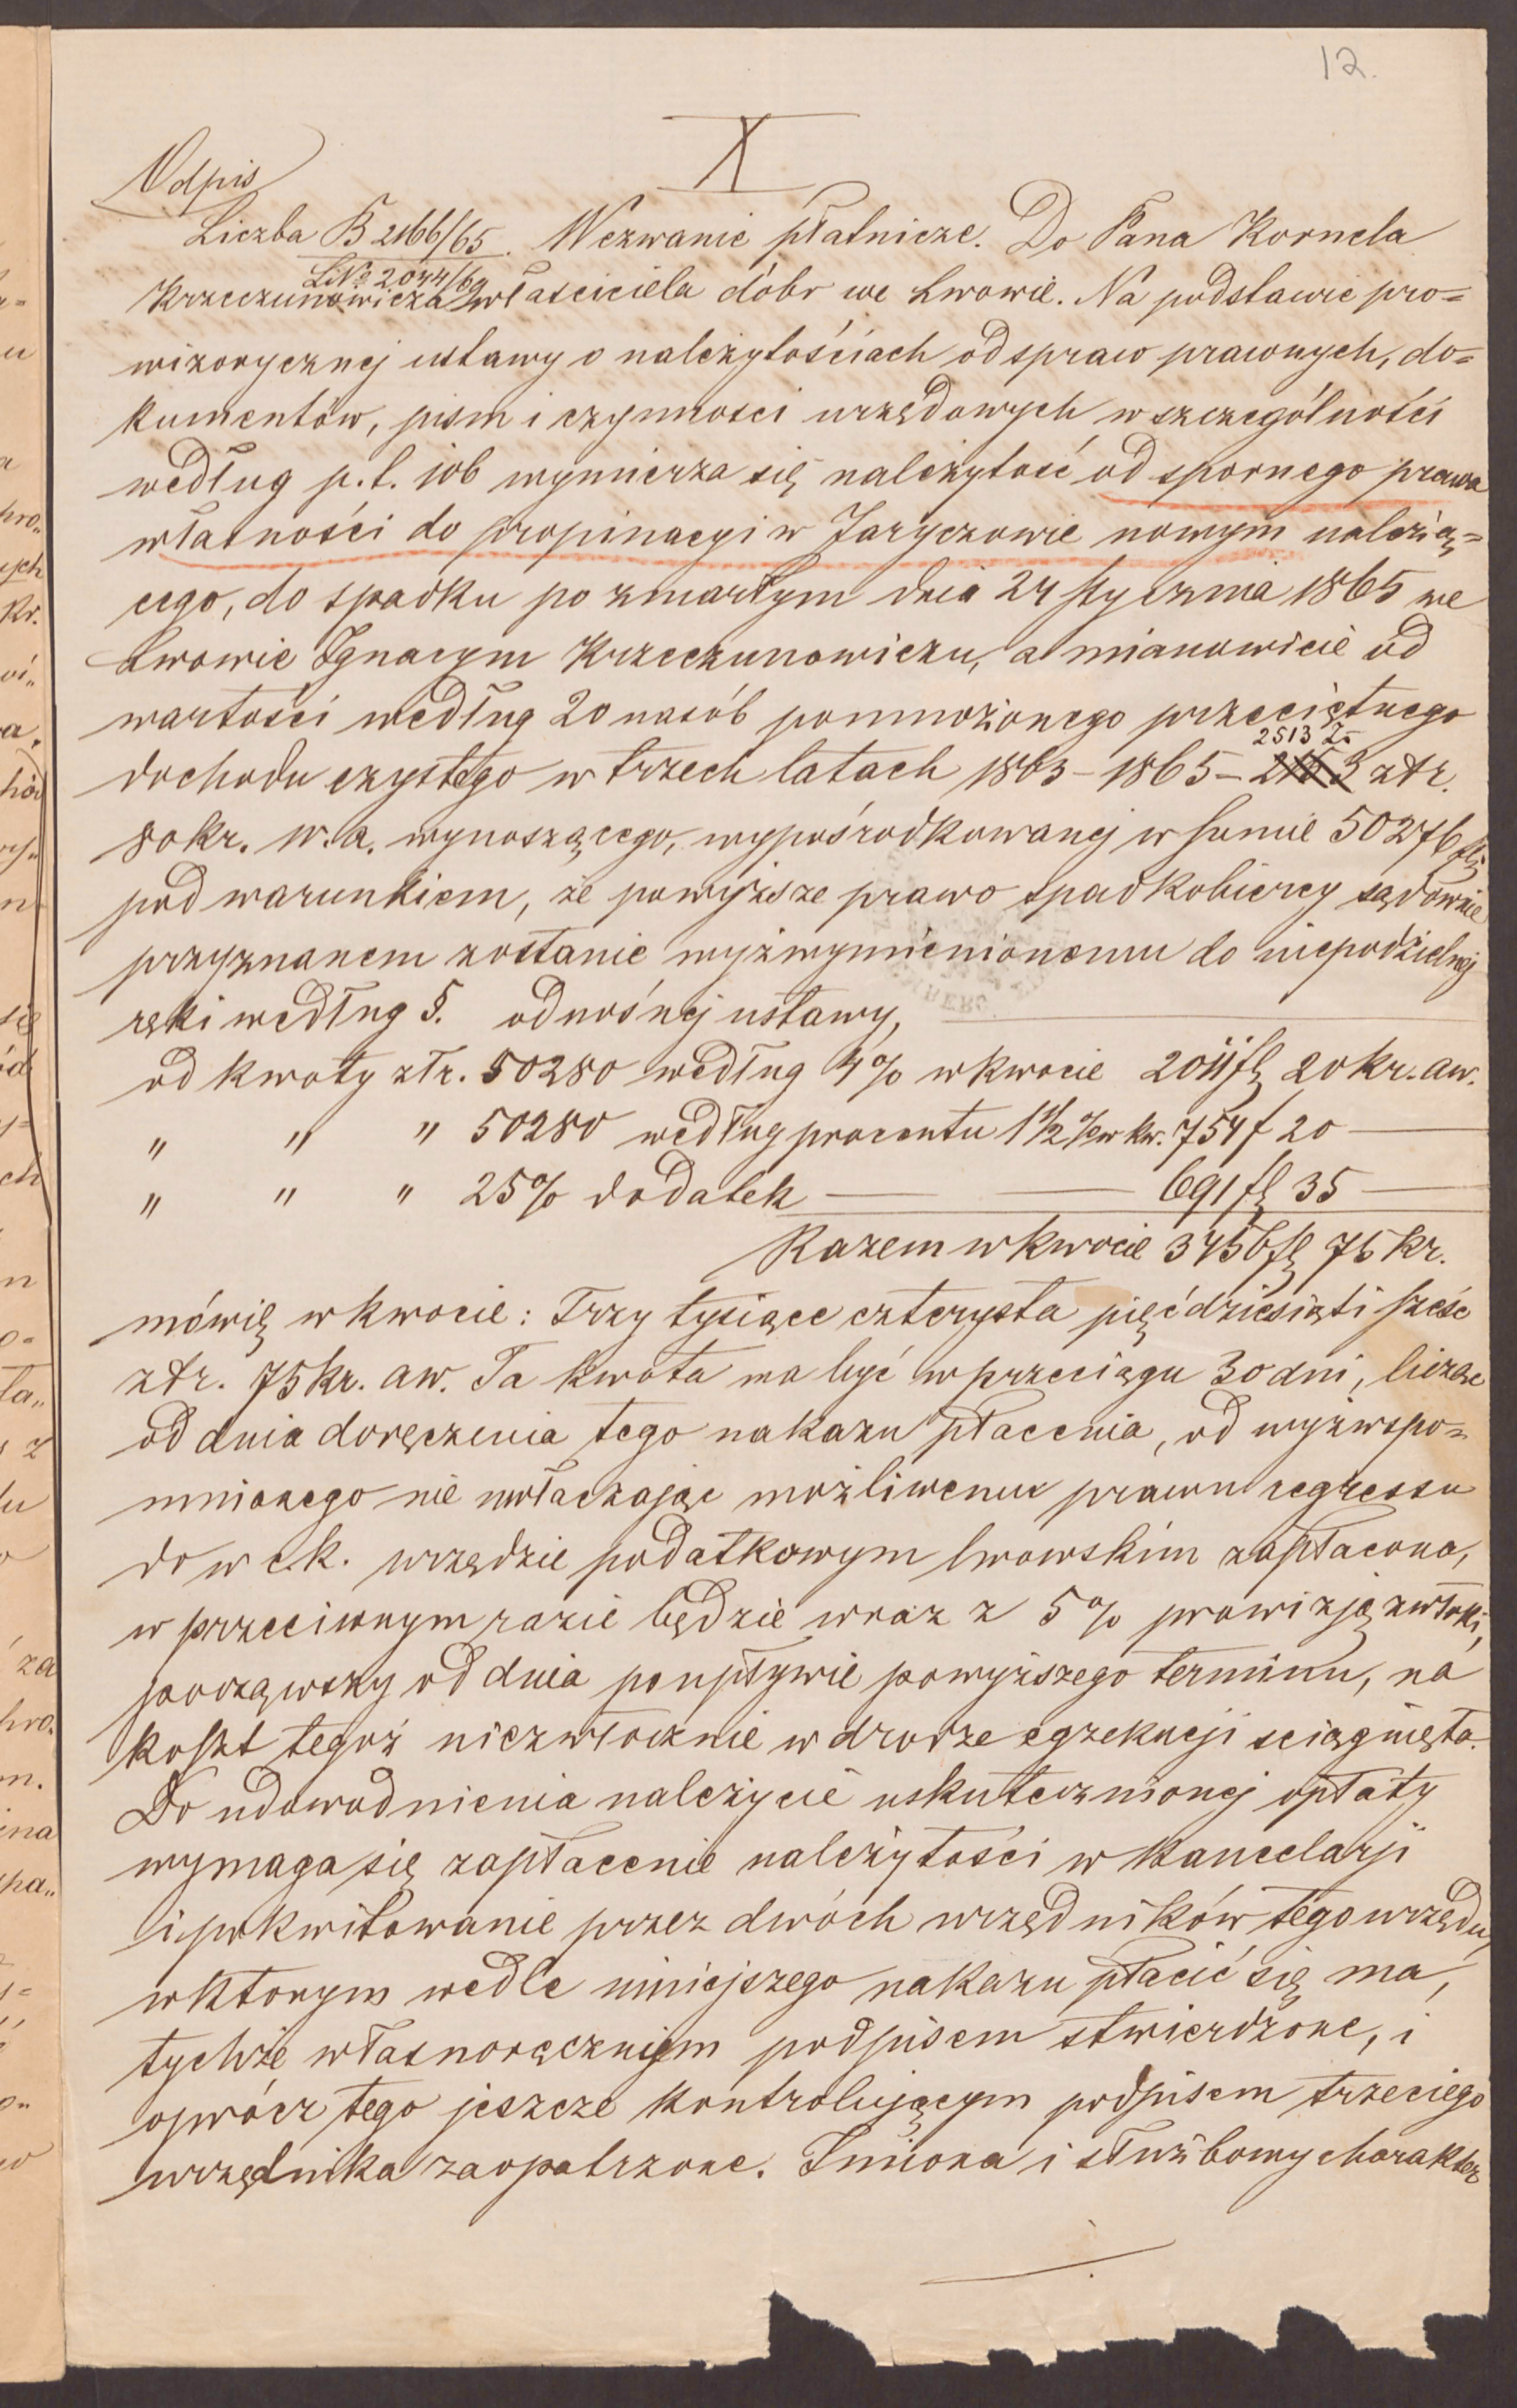 12.
X
Odpis
Liczba B 2166/65. Wezwanie płatnicze. Do Pana Kornela
LNo 2044/69
Krzeczunowicza właściciela dóbr we Lwowie. Na podstawie pro=
wizorycznej ustawy o należytościach od spraw prawnych, do=
kumentów, pism i czynności urzędowych w szczególności
według p. t. 106 wymierza się należytość od spornego prawa
własności do propinacyi w Jaryczowie nowym należią=
cego, do spadku po zmarłym dnia 24 stycznia 1865 we
Lwowie Ignacym Krzeczunowiczu, a mianowicie od
wartości według 20 nasób pomnożonego przeciętnego
2513 Zr
dochodu czystego w trzech latach 1863 – 1865 – złr.
80 kr. w. a. wynoszącego, wypośrodkowanej w sumie 50276 fl
pod warunkiem, że powyższe prawo spadkobiercy sądownie
przyznanem zostanie wyżwymienionemu do niepodzielnej
ręki według §. odnośnej ustawy,
od kwoty złr. 50280 według 4% w kwocie 2011 fl 20 kr. aw.
" " " 50280 według procentu 1 1/2 % w kw. 754 f 20 —
" " " 25% dodatek — — 691 fl 35 —
Razem w kwocie 3456 fl 75 kr.
mówię w kwocie: Trzy tysiące czterysta pięćdziesiąti sześć
złr. 75 kr. aw. Ta kwota ma być w przeciągu 30 dni, licząc
od dnia doręczenia tego nakazu płacenia, od wyżwspo=
mnionego nie uwłaczając możliwemu prawu regressu
do w c.k. urzędzie podatkowym lwowskim zapłacona,
w przeciwnym razie będzie wraz z 5% prowizją zwłoki,
począwszy od dnia po upływie powyższego terminu, na
koszt tegoż niezwłocznie w drodze egzekucji sciągnięta.
Do udowodnienia należycie uskutecznionej opłaty
wymaga się zapłacenie należytości w kancelarji
i pokwitowanie przez dwóch urzędników tego urzędu,
w ktorym wedle niniejszego nakazu płacić się ma,
tychże własnoręcznym podpisem stwierdzone, i
oprócz tego jeszcze kontrolującym podpisem trzeciego
urzędnika zaopatrzone. Imiona i służbowy charakter